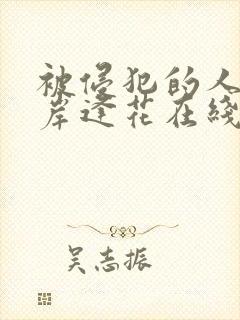 被侵犯的人
岸逢花在线
吴志振